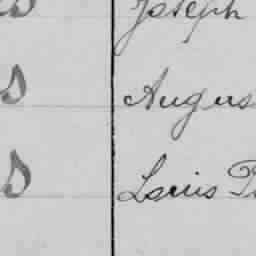 s Joseph
s Augus
s Louis P